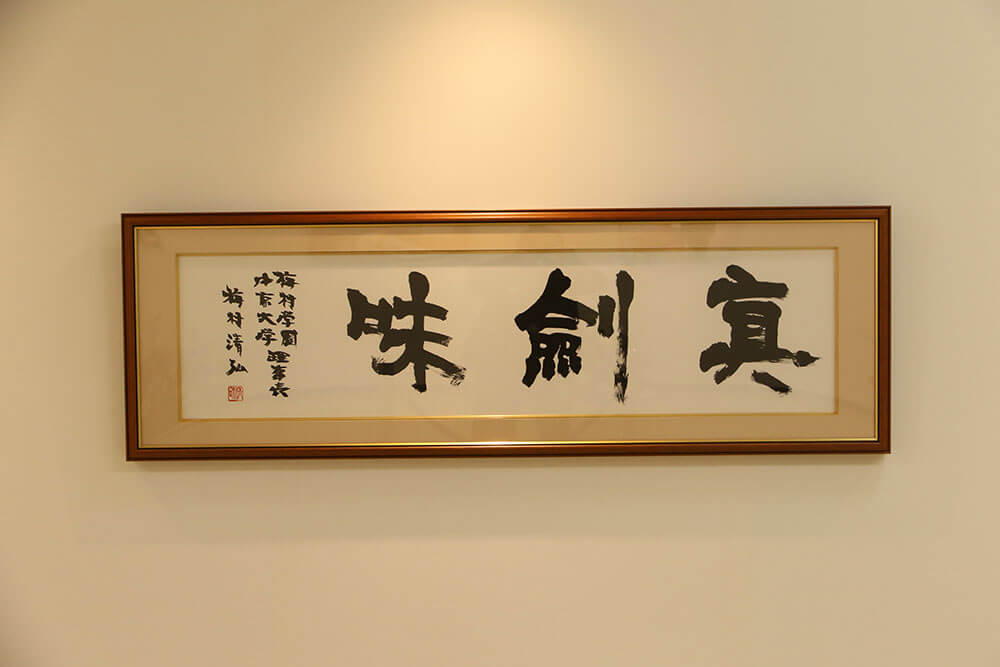 眞剣味
梅村学園
中京大学理事長
梅村清弘